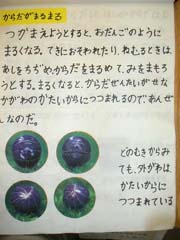 からだがまるまる
つかまえようとすると、おだんごのように
まるくなる。てきにおそわれたり、ねむるときは、
あしをちぢめ、からだをまるめて、みをまもろ
うとする。まるくなると、からだぜんたいがせな
かがわのかたいからにつつまれるので、あんぜ
んなのだ。
どのむきからみ
ても、外がわは、
かたいからに
つつまれている